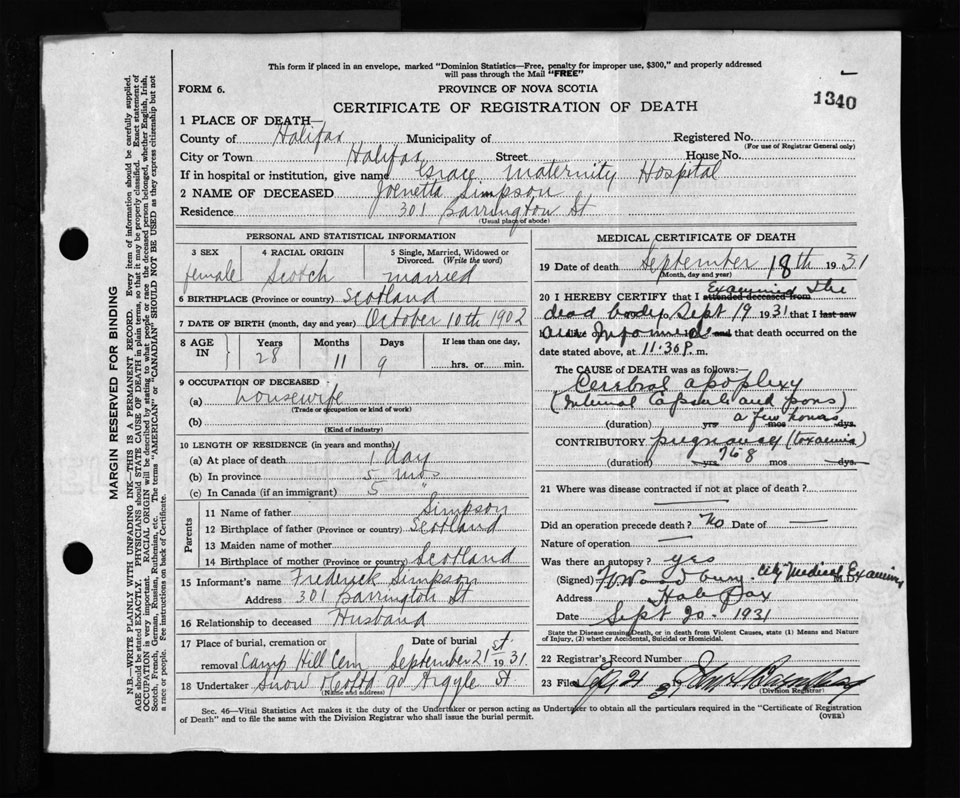 This form if placed in an envelope, marked "Dominion Statistics—Free, penalty for improper use, $300," and properly addressed
will pass through the Mail "FREE"
FORM 6. PROVINCE OF NOVA SCOTIA
1340
CERTIFICATE OF REGISTRATION OF DEATH
1 PLACE OF DEATH—
County of Halifax Municipality of Registered No.
(For use of Registrar General only)
City or Town Halifax Street House No.
If in hospital or institution, give name Grace Maternity Hospital
2 NAME OF DECEASED Joenetta Simpson
Residence 301 Barrington St
(Usual place of abode)
PERSONAL AND STATISTICAL INFORMATION
3 SEX 4 RACIAL ORIGIN 5 Single, Married, Widowed or
Divorced. (Write the word)
female Scotch married
6 BIRTHPLACE (Province or country) Scotland
7 DATE OF BIRTH (month, day and year) October 10th 1902
8 AGE IN Years Months Days If less than one day,
28 11 9 hrs. or min.
9 OCCUPATION OF DECEASED
(a) housewife
(Trade or occupation or kind of work)
(b)
(Kind of industry)
10 LENGTH OF RESIDENCE (in years and months)
(a) At place of death 1 day
(b) In province 5 mos
(c) In Canada (if an immigrant) 5 "
Parents
11 Name of father Simpson
12 Birthplace of father (Province or country) Scotland
13 Maiden name of mother
14 Birthplace of mother (Province or country) Scotland
15 Informant's name Frederick Simpson
Address 301 Barrington St
16 Relationship to deceased Husband
17 Place of burial, cremation or Date of burial
removal Camp Hill Cem September 21st 1931
18 Undertaker Snow & Co Ltd 90 Argyle St
(Name and address)
MEDICAL CERTIFICATE OF DEATH
19 Date of death September 18th 1931
(Month, day and year)
20 I HEREBY CERTIFY that I attended deceased from Examined the
dead body Sept 19 1931 that I last saw
and that death occurred on the
date stated above, at 11:30 P. m.
The CAUSE of DEATH was as follows:—
Cerebral apoplexy
(Internal Capsule and pons)
(duration) yrs a few hours mos dys.
CONTRIBUTORY pregnancy (toxaemia)
(duration) yrs. 7 or 8 mos dys.
21 Where was disease contracted if not at place of death?
Did an operation precede death? No Date of —
Nature of operation —
Was there an autopsy? yes
(Signed) City Medical Examiner M.D.
Address Halifax
Date Sept 20 1931
State the Disease causing Death, or in death from Violent Causes, state (1) Means and Nature
of Injury, (2) whether Accidental, Suicidal or Homicidal.
22 Registrar's Record Number
23 Filed 21
(Division Registrar)
Sec. 46—Vital Statistics Act makes it the duty of the Undertaker or person acting as Undertaker to obtain all the particulars required in the "Certificate of Registration
of Death" and to file the same with the Division Registrar who shall issue the burial permit. (OVER)
MARGIN RESERVED FOR BINDING
N.B.—WRITE PLAINLY WITH UNFADING INK—THIS IS A PERMANENT RECORD. Every item of information should be carefully supplied.
AGE should be stated EXACTLY. PHYSICIANS should STATE CAUSE OF DEATH in plain terms, so that it may be properly classified. Exact statement of
OCCUPATION is very important. RACIAL ORIGIN will be described by stating to what people or race the deceased person belonged, whether English, Irish,
Scotch, French, German, Russian, Ruthenian, etc. The terms "AMERICAN" or "CANADIAN" SHOULD NOT BE USED as they express citizenship but not
a race or people. Fee instructions on back of Certificate.